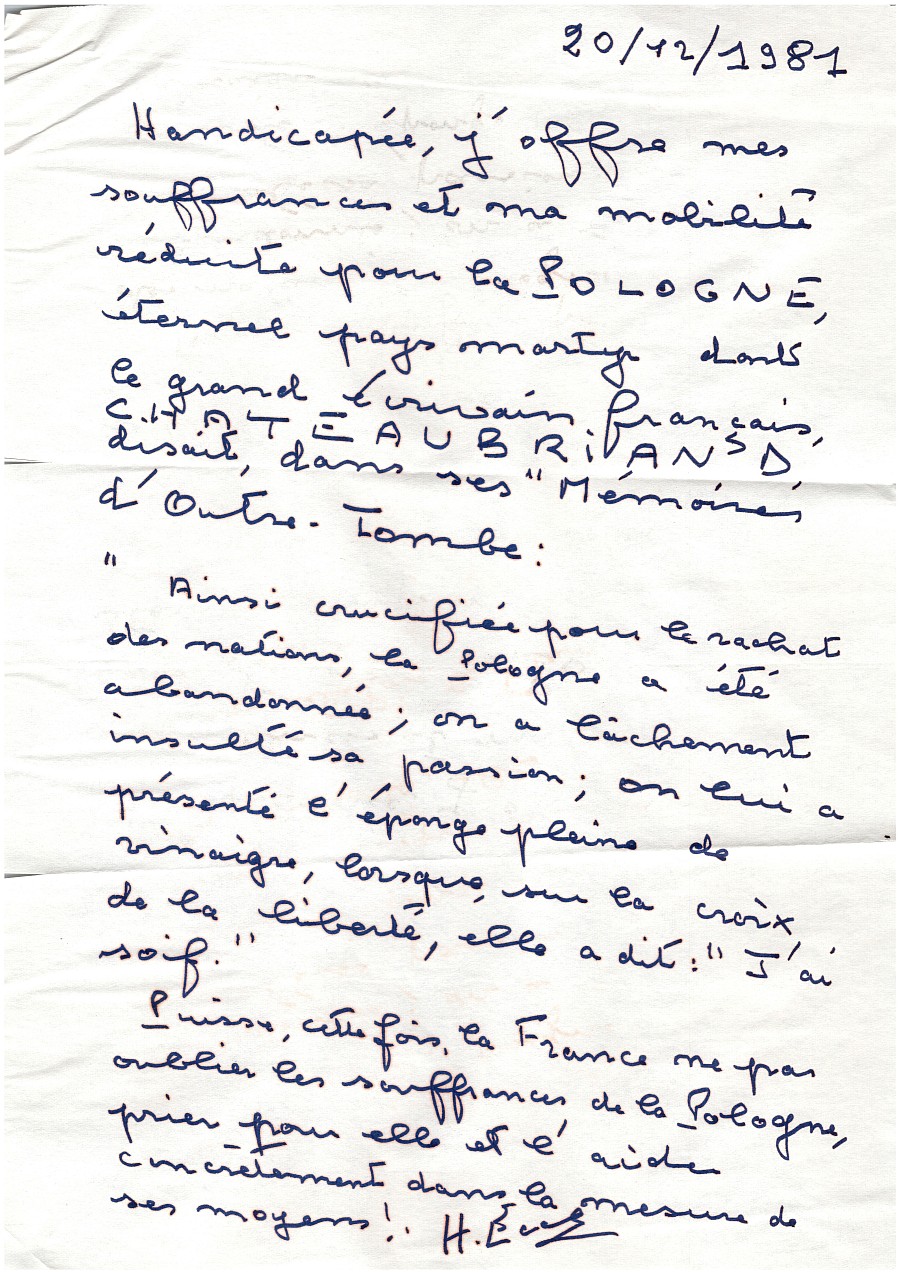 20/12/1981
Handicapée, j'offre mes
souffrances et ma mobilité
réduite pour la POLOGNE,
éternel pays martyr dont
le grand écrivain français,
CHATEAUBRIAND
disait, dans ses "Mémoires
d'Outre-Tombe :
" Ainsi crucifiée pour le rachat
des nations, la Pologne a été
abandonnée ; on a lâchement
insulté sa passion ; on lui a
présenté l'éponge pleine de
vinaigre, lorsque, sur la croix
de la liberté, elle a dit : " J'ai
soif. "
Puisse, cette fois, la France ne pas
oublier les souffrances de la Pologne,
prier pour elle et l'aider
concrètement dans la mesure de
ses moyens !.
H.